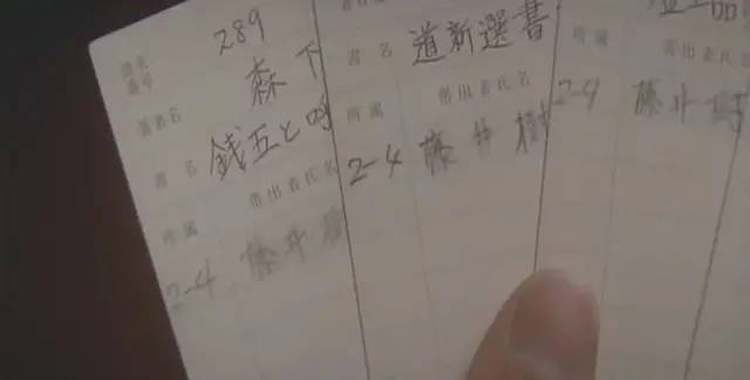 289
森下
著者名
銭五と呼
書名
所属
帯出者氏名
2-4 藤井樹
書名 道新選書
所属
帯出者氏名
2-4 藤井樹
所属
帯出者氏名
2-4 藤井樹